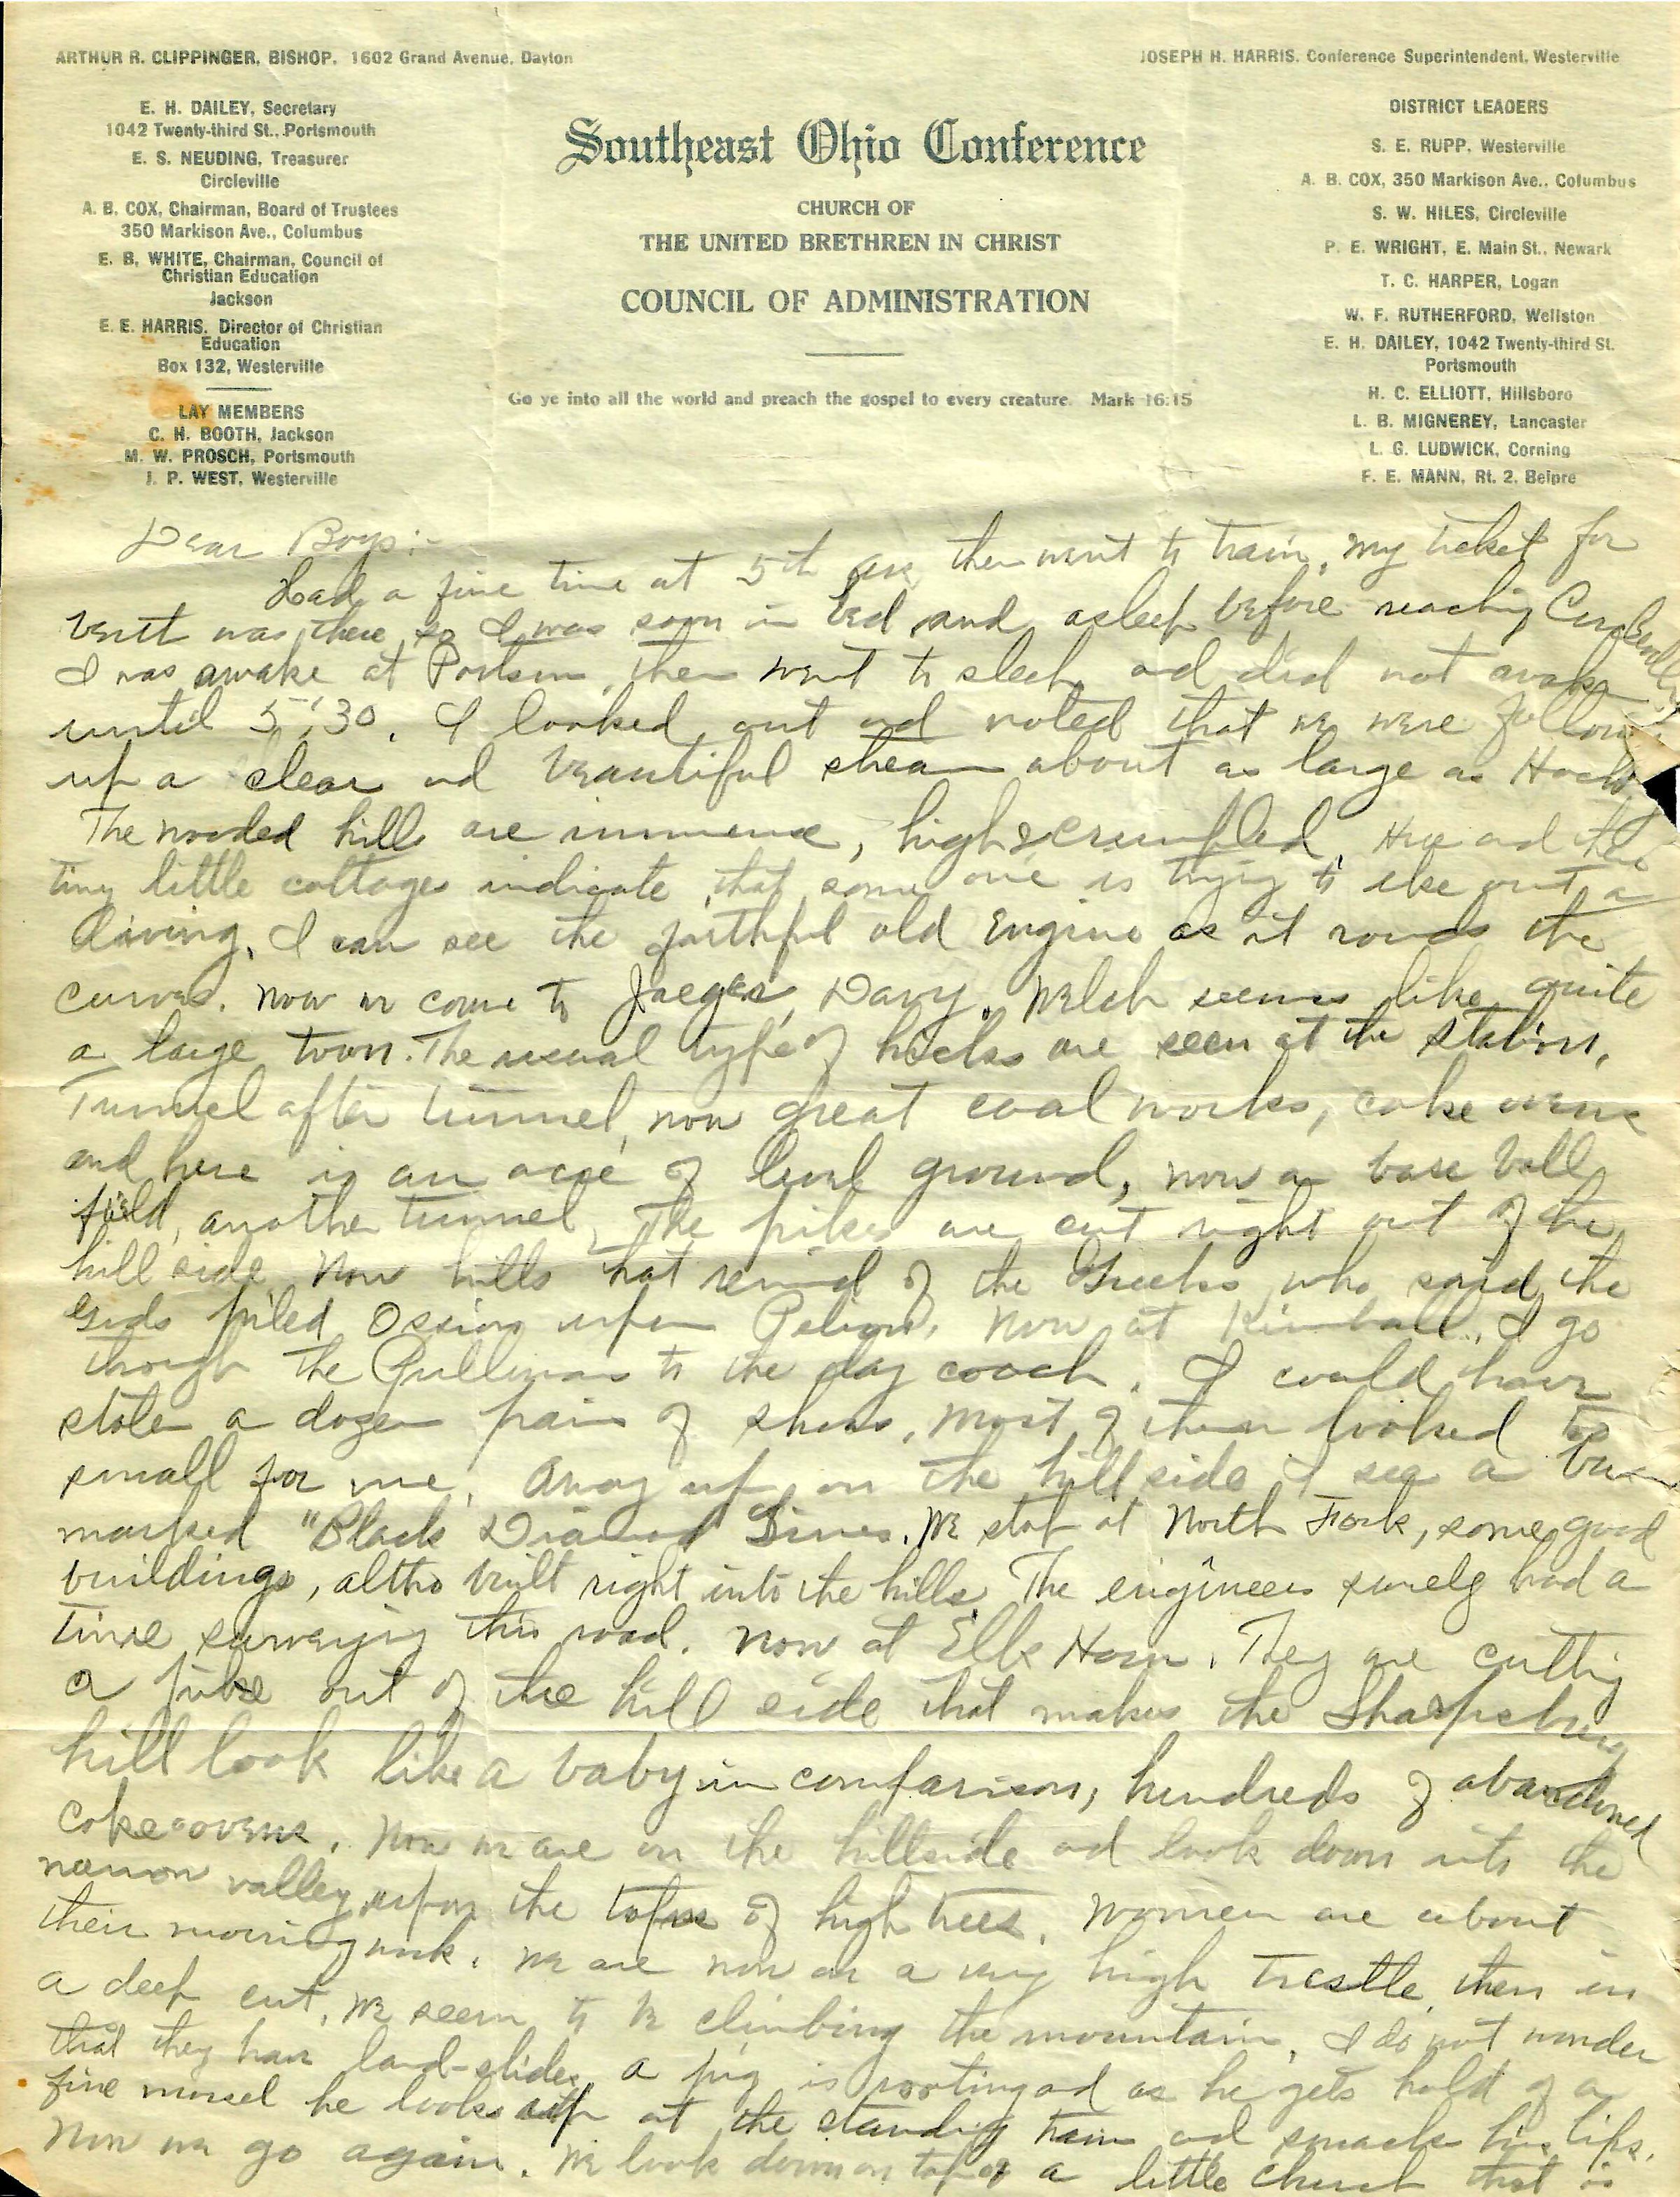 ARTHUR R. CLIPPINGER, BISHOP, 1602 Grand Avenue, Dayton
JOSEPH H. HARRIS, Conference Superintendent, Westerville
E. H. DAILEY, Secretary
1042 Twenty-third St., Portsmouth
E. S. NEUDING, Treasurer
Circleville
A. B. COX, Chairman, Board of Trustees
350 Markison Ave., Columbus
E. B. WHITE, Chairman, Council of
Christian Education
Jackson
E. E. HARRIS, Director of Christian
Education
Box 132, Westerville
LAY MEMBERS
C. H. BOOTH, Jackson
M. W. PROSCH, Portsmouth
J. P. WEST, Westerville
Southeast Ohio Conference
CHURCH OF
THE UNITED BRETHREN IN CHRIST
COUNCIL OF ADMINISTRATION
Go ye into all the world and preach the gospel to every creature. Mark 16:15
DISTRICT LEADERS
S. E. RUPP, Westerville
A. B. COX, 350 Markison Ave., Columbus
S. W. HILES, Circleville
P. E. WRIGHT, E. Main St., Newark
T. C. HARPER, Logan
W. F. RUTHERFORD, Wellston
E. H. DAILEY, 1042 Twenty-third St.
Portsmouth
H. C. ELLIOTT, Hillsboro
L. B. MIGNEREY, Lancaster
L. G. LUDWICK, Corning
F. E. MANN, Rt. 2, Belpre
Dear Boys:-
Had a fine time at 5th ave, then went to train, my ticket for
berth was there, so I was soon in bed and asleep before reaching
I was awake at Portsm, then went to sleep and did not awake
until 5:30. I looked out and noted that we were
up a clear and beautiful stream about as large as
The wooded hills are immense, high & crumpled. Here and there
tiny little cottages indicate that some one is trying to eke out a
living. I can see the faithful old engine as it rounds the
curves. Now we come to Jaeger, Davy. Welch seems like quite
a large town. The usual type of hicks are seen at the station.
Tunnel after tunnel, now great coal works, coke ovens
and here is an acre of level ground, now a base ball
field, another tunnel. The pikes are cut right out of the
hill side. Now hills that remind of the Greeks who said the
Gods piled Ossion upon Pelion. Now at Kimball. I go
through the Pullmans to the day coach. I could have
stolen a dozen pairs of shoes, most of them looked too
small for me. Away up on the hill side I see a bus
marked "Black Diamond Lines. We stop at North Fork, some good
buildings, altho built right into the hills. The engineers surely had a
time surveying this road. Now at Elk Horn. They are cutting
a pike out of the hill side that makes the Sharpsburg
hill look like a baby in comparison, hundreds of abandoned
coke ovens. Now we are on the hillside and look down into the
narrow valley upon the tops of high trees. Women are about
their morning work. We are now on a very high trestle, then in
a deep cut. We seem to be climbing the mountain. I do not wonder
that they have land-slides. A pig is rooting and as he gets hold of a
fine morsel he looks up at the standing train and smacks his lips.
Now we go again. We look down on top of a little church that is